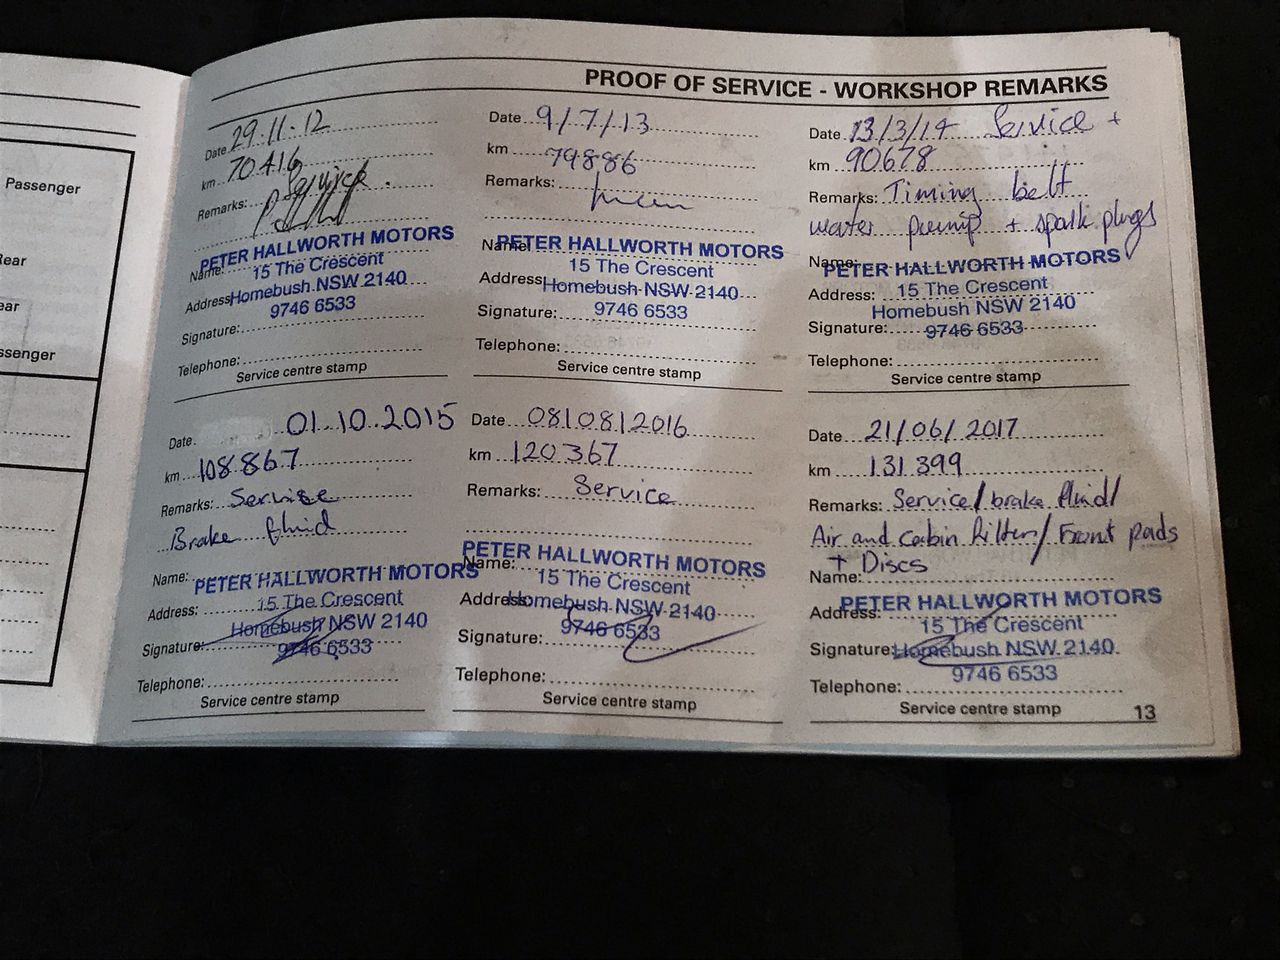 Passenger
Rear
ear
ssenger
PROOF OF SERVICE - WORKSHOP REMARKS
Date 29.11.12
km 70416
Remarks: Service
PETER HALLWORTH MOTORS
Name:
15 The Crescent
Address Homebush NSW 2140
9746 6533
Signature:
Telephone:
Service centre stamp
Date 9/7/13
km 79886
Remarks:
Name:
PETER HALLWORTH MOTORS
15 The Crescent
Address Homebush NSW 2140
Signature: 9746 6533
Telephone:
Service centre stamp
Date 13/3/14 Service +
km 90678
Remarks: Timing belt
water pump + spark plugs
Name:
PETER HALLWORTH MOTORS
Address: 15 The Crescent
Homebush NSW 2140
Signature: 9746 6533
Telephone:
Service centre stamp
Date 01.10.2015
km 108867
Remarks: Service
Brake fluid
Name: PETER HALLWORTH MOTORS
Address: 15 The Crescent
Homebush NSW 2140
Signature: 9746 6533
Telephone:
Service centre stamp
Date 08/08/2016
km 120367
Remarks: Service
PETER HALLWORTH MOTORS
Name:
15 The Crescent
Address Homebush NSW 2140
Signature: 9746 6533
Telephone:
Service centre stamp
Date 21/06/2017
km 131399
Remarks: Service/brake fluid/
Air and cabin filter/Front pads
+ Discs
Name:
Address: PETER HALLWORTH MOTORS
15 The Crescent
Signature: Homebush NSW 2140
9746 6533
Telephone:
Service centre stamp
13